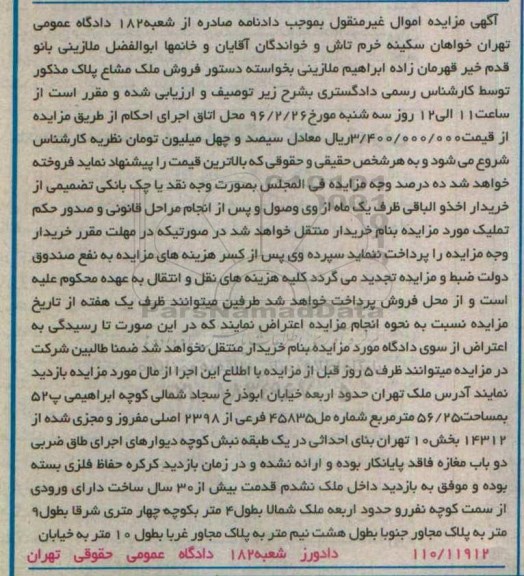 آگهی مزایده اموال غیرمنقول بموجب دادنامه صادره از شعبه۱۸۲ دادگاه عمومی
تهران خواهان سکینه خرم تاش و خواندگان آقایان و خانمها ابوالفضل ملازینی بانو
قدم خیر قهرمان زاده ابراهیم ملازینی بخواسته دستور فروش ملک مشاع پلاک مذکور
توسط کارشناس رسمی دادگستری بشرح زیر توصیف و ارزیابی شده و مقرر است از
ساعت۱۱ الی۱۲ روز سه شنبه مورخ۹۶/۲/۲۶ محل اتاق اجرای احکام از طریق مزایده
از قیمت۳/۴۰۰/۰۰۰/۰۰۰ریال معادل سیصد و چهل میلیون تومان نظریه کارشناس
شروع می شود و به هر شخص حقیقی و حقوقی که بالاترین قیمت را پیشنهاد نماید فروخته
خواهد شد ده درصد وجه مزایده فی المجلس بصورت وجه نقد یا چک بانکی تضمیمی از
خریدار اخذو الباقی ظرف یک ماه از وی وصول و پس از انجام مراحل قانونی و صدور حکم
تملیک مورد مزایده بنام خریدار منتقل خواهد شد در صورتیکه در مهلت مقرر خریدار
وجه مزایده را پرداخت ننماید سپرده وی پس از کسر هزینه های مزایده به نفع صندوق
دولت ضبط و مزایده تجدید می گردد کلیه هزینه های نقل و انتقال به عهده محکوم علیه
است و از محل فروش پرداخت خواهد شد طرفین میتوانند ظرف یک هفته از تاریخ
مزایده نسبت به نحوه انجام مزایده اعتراض نمایند که در این صورت تا رسیدگی به
اعتراض از سوی دادگاه مورد مزایده بنام خریدار منتقل نخواهد شد ضمنا طالبین شرکت
در مزایده میتوانند ظرف ۵ روز قبل از مزایده با اطلاع این اجرا از مال مورد مزایده بازدید
نمایند آدرس ملک تهران حدود اربعه خیابان ابوذر خ سجاد شمالی کوچه ابراهیمی پ۵۲
بمساحت۵۶/۲۵ مترمربع شماره مل۴۵۸۳۵ فرعی از ۲۳۹۸ اصلی مفروز و مجزی شده از
۱۴۳۱۲ بخش۱۰ تهران بنای احداثی در یک طبقه نبش کوچه دیوارهای اجرای طاق ضربی
دو باب مغازه فاقد پایانکار بوده و ارائه نشده و در زمان بازدید کرکره حفاظ فلزی بسته
بوده و موفق به بازدید داخل ملک نشدم قدمت بیش از۳۰ سال ساخت دارای ورودی
از سمت کوچه نفررو حدود اربعه ملک شمالا بطول۴ متر بکوچه چهار متری شرقا بطول۹
متر به پلاک مجاور جنوبا بطول هشت نیم متر به پلاک مجاور غربا بطول ۱۰ متر به خیابان
۱۱۰/۱۱۹۱۲ دادورز شعبه۱۸۲ دادگاه عمومی حقوقی تهران
ParsNamadData